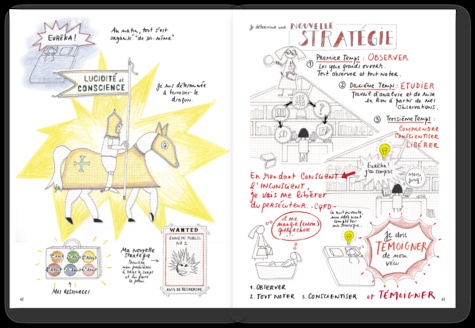 EURÊKA!
Au matin, tout s'est
organisé "de soi-même"
LUCIDITÉ et
CONSCIENCE
Je suis déterminée
à terrasser le
dragon.
MES RESSOURCES
Ma nouvelle
stratégie
WANTED
ENNEMI PUBLIC
N° 1
AVIS DE RECHERCHE
Je détermine une NOUVELLE
STRATÉGIE
① PREMIER TEMPS : OBSERVER
Les yeux grands ouverts.
Tout observer et tout noter.
② DEUXIÈME TEMPS : ÉTUDIER
Travail d'analyse et de mise
en lieu à partir de mes
observations.
③ TROISIÈME TEMPS :
COMPRENDRE
CONSCIENTISER
LIBÉRER
Eurêka!
j'ai compris
En rendant CONSCIENT
l'INCONSCIENT,
je vais me libérer
du PERSÉCUTEUR. CQFD
Je dois
TÉMOIGNER
de mon
vécu
1. OBSERVER
2. TOUT NOTER 3. CONSCIENTISER et TÉMOIGNER